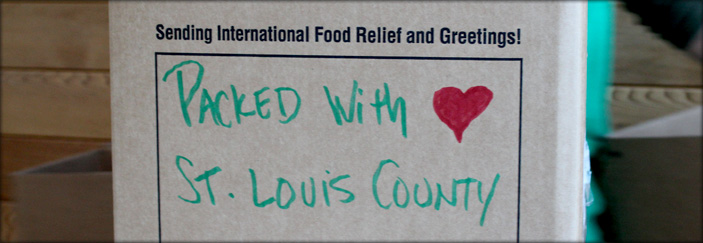 Sending International Food Relief and Greetings!
PACKED With ♥
ST. LOUIS COUNTY